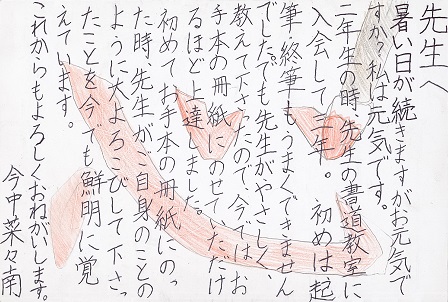 先生へ
暑い日が続きますがお元気で
すか?私は元気です。
二年生の時、先生の書道教室に
入会して三年。初めは起
筆、終筆もうまくできません
でした。でも先生がやさしく、
教えて下さったので、今ではお
手本の冊紙にのせていただけ
るほど上達しました。
初めてお手本の冊紙にのっ
た時、先生がご自身のことの
ように大よろこびして下さっ
たことを今でも鮮明に覚
えています。
これからもよろしくおねがいします。
今中菜々南